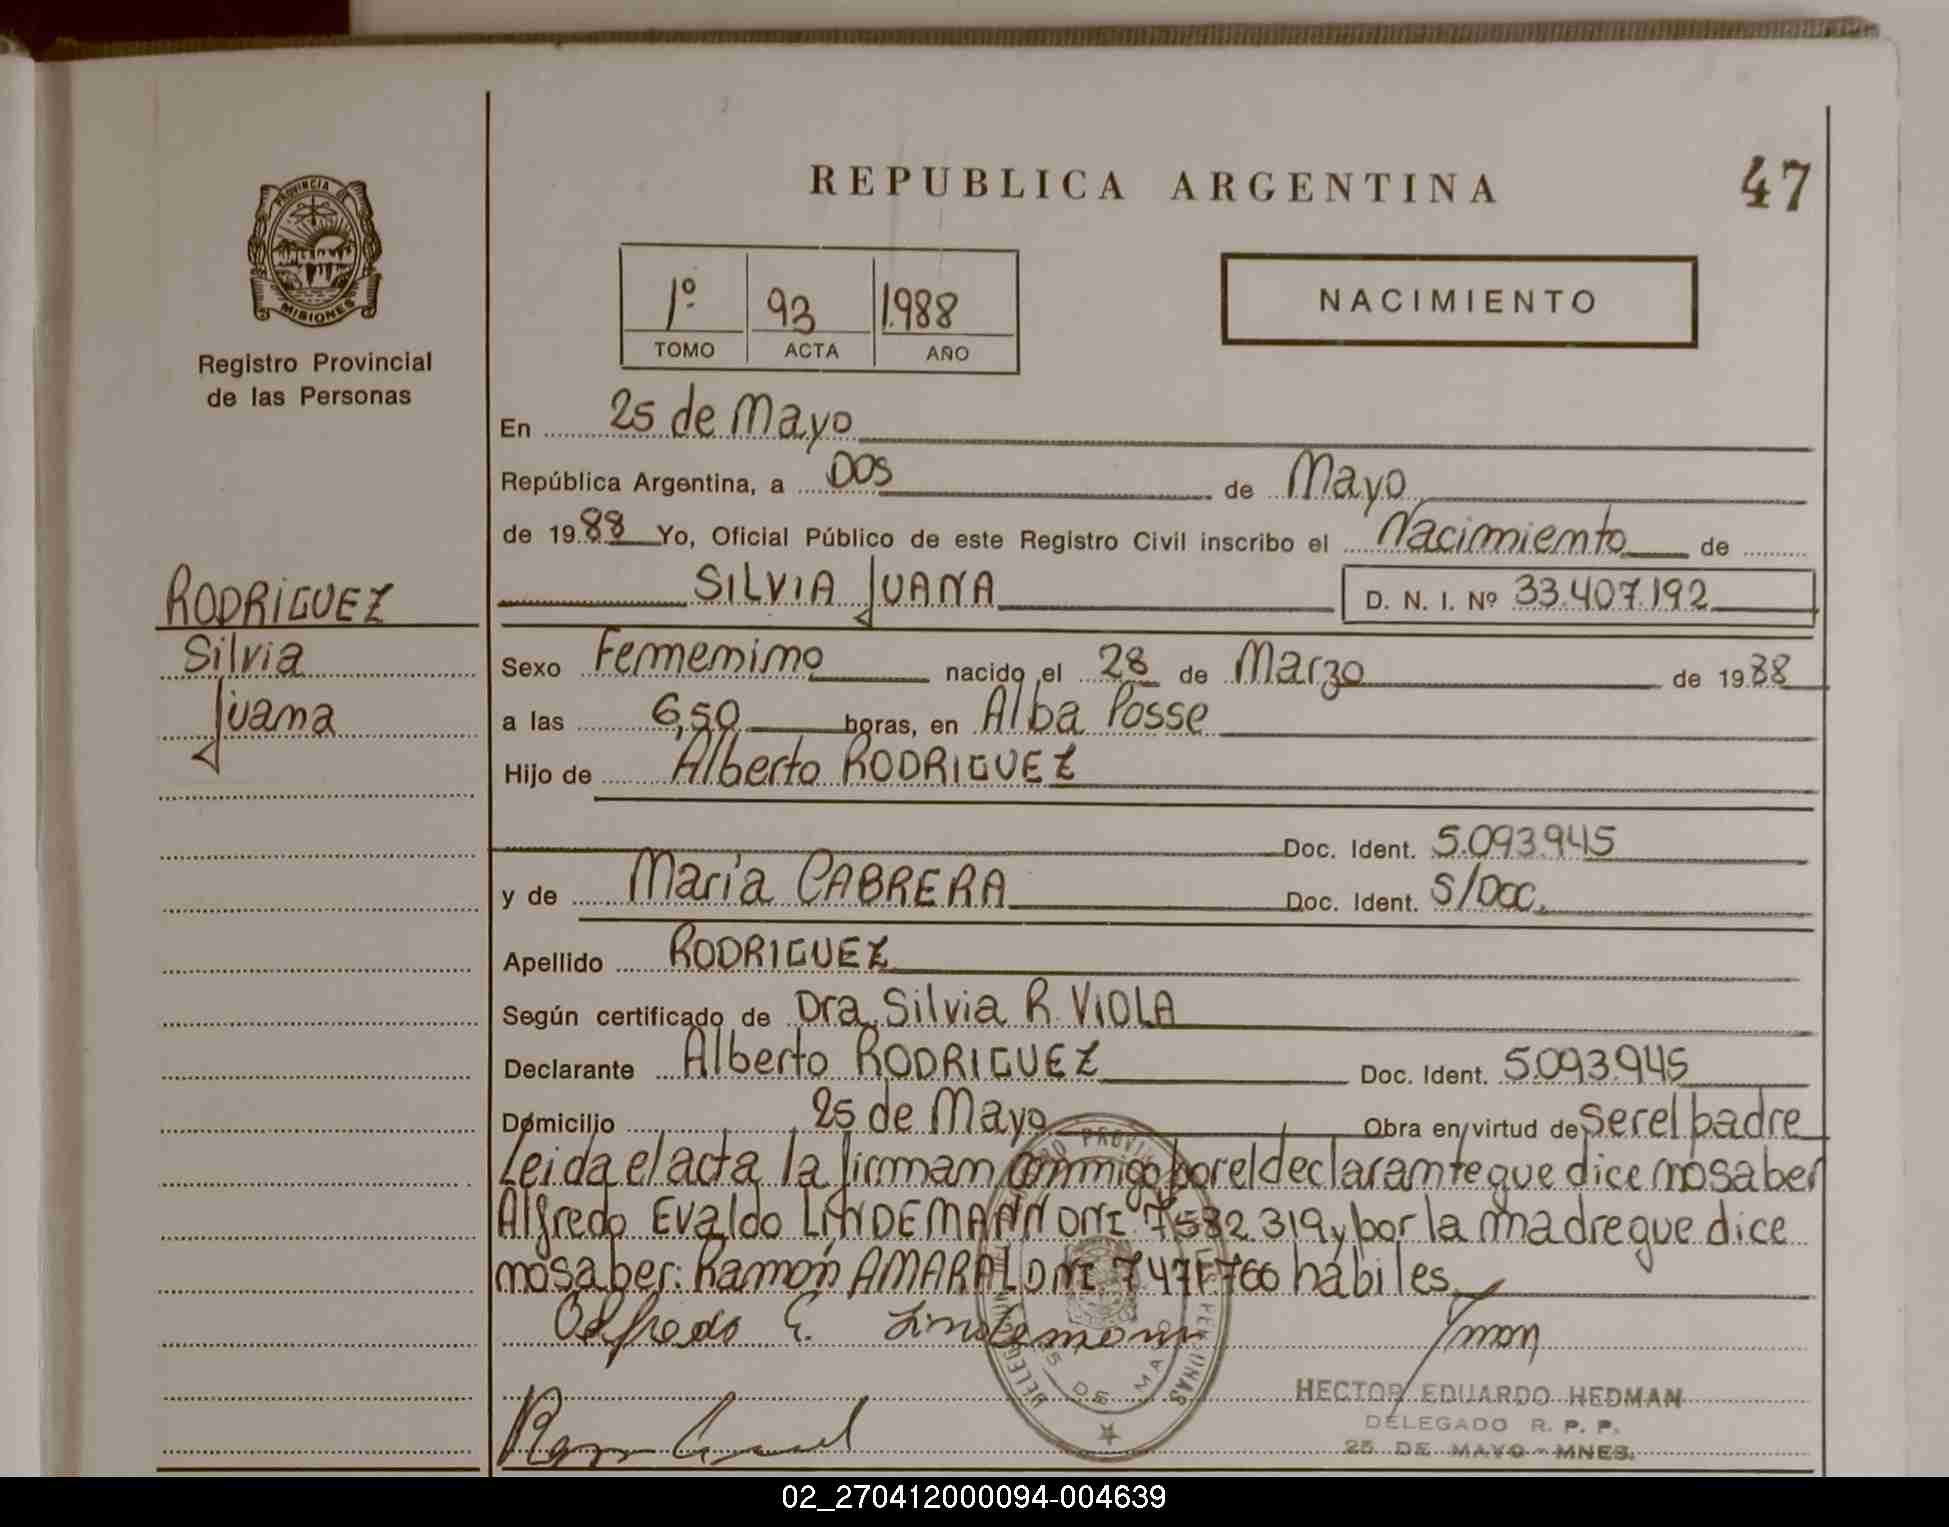 REPUBLICA ARGENTINA
47
PROVINCIA
MISIONES
Registro Provincial
de las Personas
1º 93 1988
TOMO ACTA AÑO
NACIMIENTO
En 25 de Mayo
República Argentina, a DOS de Mayo
de 19 88 Yo, Oficial Público de este Registro Civil inscribo el Nacimiento de
SILVIA JUANA D. N. I. Nº 33.407.192
RODRIGUEZ
Silvia
Juana
Sexo Femenino nacido el 28 de Marzo de 19 88
a las 6,50 horas, en Alba Posse
Hijo de Alberto RODRIGUEZ
Doc. Ident. 5.093.945
y de María CABRERA Doc. Ident. S/Doc.
Apellido RODRIGUEZ
Según certificado de Dra. Silvia R. VIOLA
Declarante Alberto RODRIGUEZ Doc. Ident. 5.093.945
Domicilio 25 de Mayo Obra en virtud de ser el padre
Leida el acta la firman conmigo por el declarante que dice no saber
Alfredo Evaldo LINDEMANN DNI 7582.319 y por la madre que dice
no saber: Ramón AMARAL DNI 7471766 hábiles
Alfredo E. Lindemann
HECTOR EDUARDO HEDMAN
DELEGADO R. P. P.
25 DE MAYO - MNES.
25 DE MAYO
02_270412000094-004639